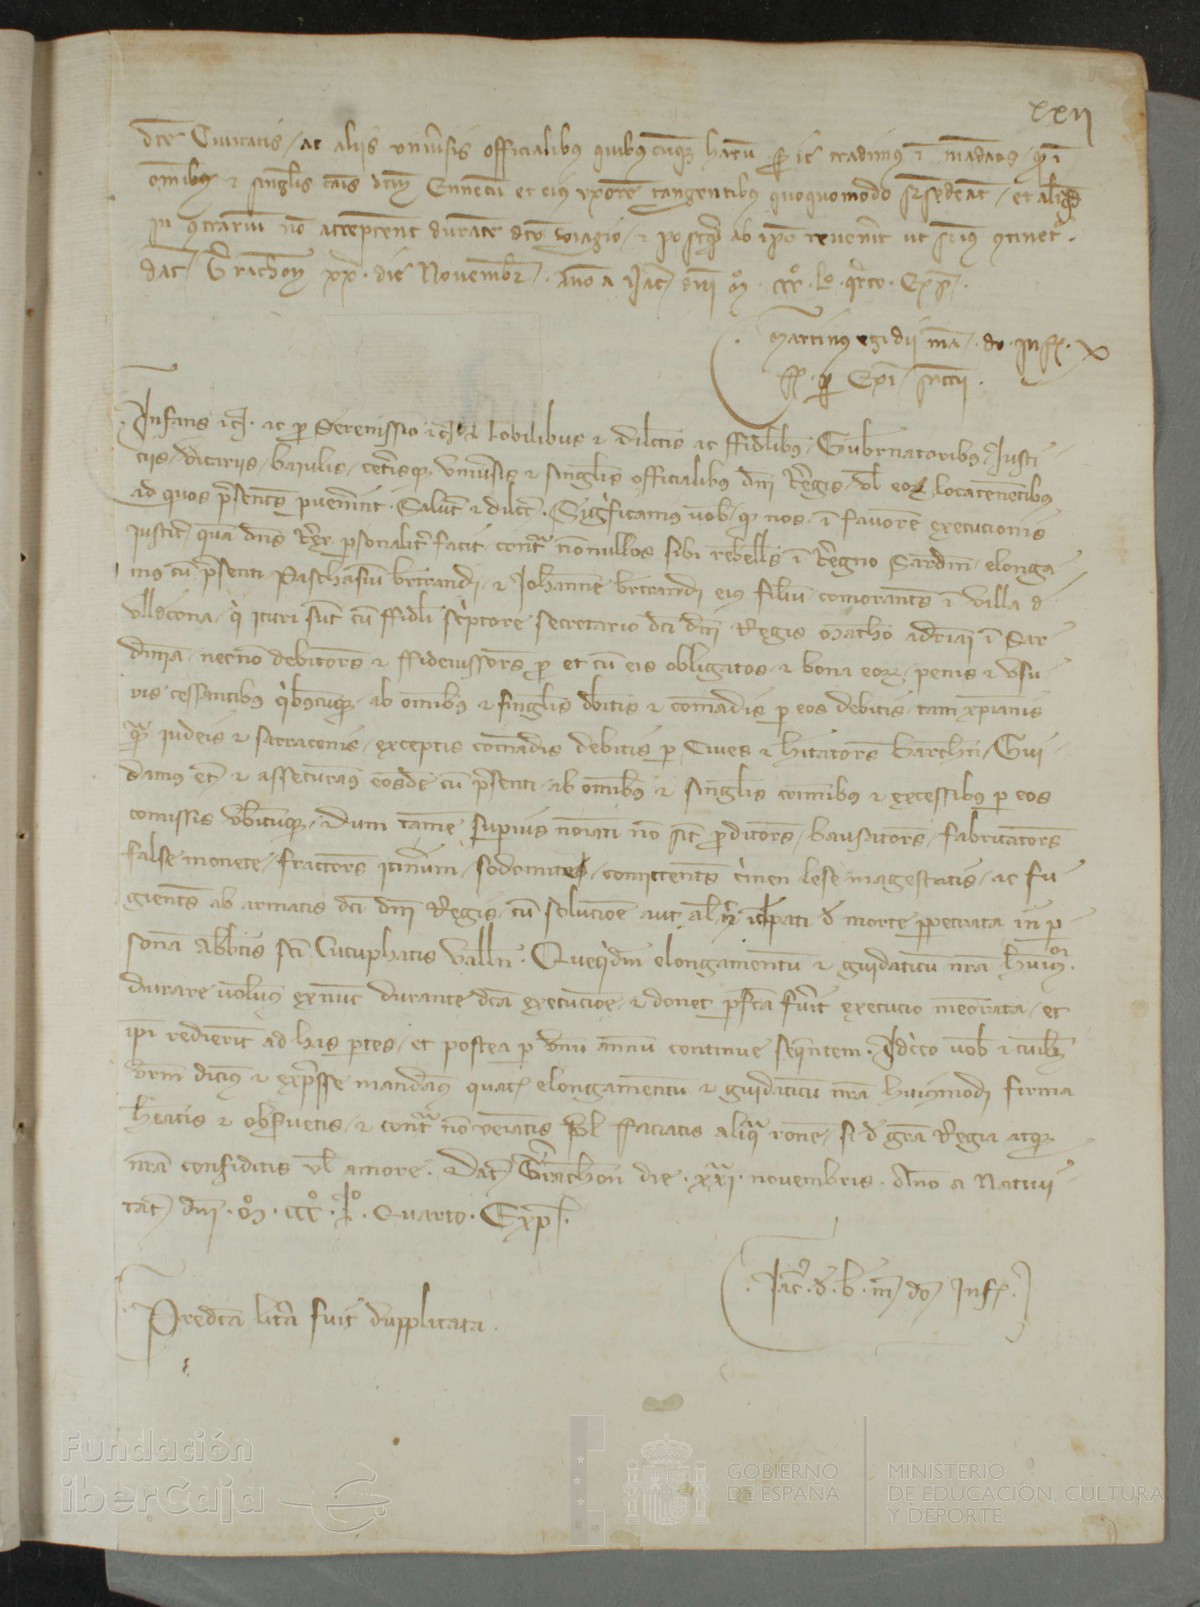 xxii
dcte Civitatis / ac aliis universis officialibus quibuscumque harum serie tradimus in mandatis quod in
omnibus et singulis causis dictum Ennecum et eius uxorem tangentibus quoquomodo supersedeant / et aliquid
in contrarium non acceptent durante dicto viagio / et postquam ab ipso revenerit ut superius continetur.
Dat. xx. die Novembr. Anno a Nat. dni mº. cccº. lº. quarto. Exp.
Martinus egidii man. do. Inf.
per Exi.
Infans etc. ac per Serenissimo etc. Nobilibus et dilectis ac fidelibus. Gubernatoribus / Justi
ciis / vicariis / baiulis / ceterisque universis et singulis officialibus dni Regis / vel eorum locatenentibus
ad quos presentes pervenerint. Salutem et dilect. Significamus vobis quod nos in favorem executionis
justicie quam dns Rex personaliter facit contra nonnullos sibi rebelles in Regno Sardinie / elonga
mus cum presenti Paschasium bertrandi et Johannem bertrandi eius filium comorantes in villa de
Ulldecona / qui ituri sunt cum fideli scriptore secretario dci dni Regis Matheo adriani in Sar
diniam / necnon debitores et fideiussores pro et cum eis obligatos et bona eorum / penis et usu
ris cessantibus quibuscumque / ab omnibus et singulis debitis et comandis per eos debitis / tam xpianis
quam judeis et sarracenis / exceptis comandis debitis per Cives et habitatores Barchn / Gui
damus etiam et assecuramus eosdem cum presenti / ab omnibus et singulis criminibus et excessibus per eos
comissis ubicumque / dum tamen superius nominati non sint proditores / bausatores / fabricatores
false monete / fractores itinerum / sodomite / comittentes crimen lese magestatis / ac fu
gientes ab armatis dci dni Regis / cum solucione aut al inculpati de morte perpetrata in per
sonam abbatis sci Cucuphatis vallen. Quequidem elongamentum et guidaticum nram huiusmodi
durare volumus ex nunc durante dicta execucione / et donec perfecta fuerit execucio memorata / et
ipi redierint ad has partes / et postea per unum annum continue sequentem. Idcirco vobis et cuilibet
vrum dicimus et expresse mandamus quatenus elongamentum et guidaticum nram huiusmodi firma
habeatis et observetis / et contra non veniatis vel faciatis aliqua racione / si de gra Regia atque
nra confiditis vel amore. Dat. die. xxi. novembris. Anno a Nativi
tate dni. mº. cccº. lº. Quarto. Exp.
Jac. d. b. m do Inf.
Predicta litera fuit dupplicata.
Fundación
iberCaja
GOBIERNO
DE ESPAÑA
MINISTERIO
DE EDUCACIÓN, CULTURA
Y DEPORTE